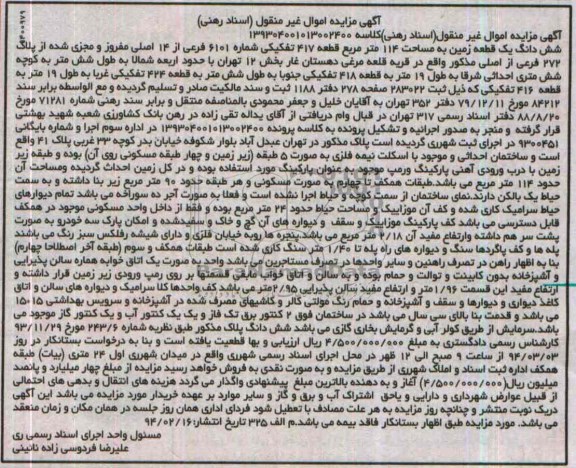 آگهی مزایده اموال غیر منقول (اسناد رهنی)
آگهی مزایده اموال غیر منقول(اسناد رهنی)کلاسه ۱۳۹۳۰۴۰۰۱۰۱۳۰۰۲۴۰۰
شش دانگ یک قطعه زمین به مساحت ۱۱۴ متر مربع قطعه ۴۱۷ تفکیکی شماره ۶۱۰۱ فرعی از ۱۴ اصلی مفروز و مجزی شده از پلاک
۲۷۲ فرعی از اصلی مذکور واقع در قریه قلعه مرغی دهستان غار بخش ۱۲ تهران با حدود اربعه شمالا به طول شش متر به کوچه
شش متری احداثی شرقا به طول ۱۹ متر به قطعه ۴۱۸ تفکیکی جنوبا به طول شش متر به قطعه ۴۲۴ تفکیکی غربا به طول ۱۹ متر به
قطعه ۴۱۶ تفکیکی که ذیل ثبت ۲۸۳۰۲۲ صفحه ۲۷۸ دفتر ۱۱۸۸ ثبت و سند مالکیت صادر و تسلیم گردیده و مع الواسطه برابر سند
۸۴۲۱۲ مورخ ۷۹/۱۲/۱۱ دفتر ۳۵۲ تهران به آقایان خلیل و جعفر محمودی بالمناصفه منتقل و برابر سند رهنی شماره ۷۱۲۸۱ مورخ
۸۸/۸/۲۰ دفتر اسناد رسمی ۳۱۷ تهران در قبال وام دریافتی از آقای یداله تقی زاده در رهن بانک کشاورزی شعبه شهید بهشتی
قرار گرفته و منجر به صدور اجرائیه و تشکیل پرونده به کلاسه پرونده ۱۳۹۳۰۴۰۰۱۰۱۳۰۰۲۴۰۰ در اداره سوم اجرا و شماره بایگانی
۹۳۰۰۴۵۱ در اجرای ثبت شهرری گردیده است پلاک مذکور در تهران عبدل آباد بلوار شکوفه خیابان بدر کوچه ۳۳ غربی پلاک ۴۱ واقع
است و ساختمان احداثی و موجود با اسکلت نیمه فلزی به صورت ۵ طبقه (زیر زمین و چهار طبقه مسکونی روی آن) بوده و طبقه زیر
زمین با درب ورودی آهنی پارکینگ و رمپ موجود به عنوان پارکینگ مورد استفاده بوده و در کل زمین احداث گردیده ومساحت آن
حدود ۱۱۴ متر مربع می باشد.طبقات همکف تا چهارم به صورت مسکونی و هر طبقه حدود ۹۰ متر مربع زیر بنا داشته و به سمت
حیاط یک بالکن دارند.نمای ساختمان از سمت کوچه و حیاط اجرا نشده است و فعلا به صورت آجر ته سوراخه می باشد تمام دیوارهای
حیاط سرامیک کاری شده و کف آن موزاییک و مساحت حیاط حدود ۲۴ متر مربع بوده و فقط از داخل واحد مسکونی موجود در همکف
قابل دسترسی می باشد کف پارکینگ موزاییک و سقف و دیواره های آن گچ و خاک و سفیدشده و امکان پارک سه خودرو به صورت
پشت سر هم داشته وارتفاع مفید آن ۲/۱۸ متر مربع می باشد.پنجره ها رو به خیابان فلزی و دارای شیشه رفلکس سبز رنگ می باشند
پله ها و کف پاگردها سنگ و دیواره های راه پله تا ۱/۴۰ متر سنگ کاری شده است طبقات همکف و سوم (طبقه آخر اصطلاحا چهارم)
بنا به اظهار راهن در تصرف راهنین و سایر واحدها در تصرف مستاجرین می باشد واحد به صورت یک اتاق خوابه هماره سالن پذیرایی
و آشپزخانه بدون کابینت و توالت و حمام بوده و کف سالن و اتاق خواب مابقی قسمتی بر روی رمپ ورودی زیر زمین قرار داشته و
ارتفاع مفید این قسمت ۱/۹۶ متر و ارتفاع مفید سالن پذیرایی ۲/۹۵ متر می باشد کف واحدها کلا سرامیک و دیواره های سالن و اتاق
کاغذ دیواری و دیوارها و سقف و آشپزخانه و حمام رنگ مولتی کالر و کاشیهای مصرف شده در آشپزخانه و سرویس بهداشتی ۱۵*۱۵
می باشد و قدمت بنا بالای سی سال می باشد در ساختمان فوق ۲ کنتور برق تک فاز و یک یک کنتور آب و یک کنتور گاز موجود می
باشد.سرمایش از طریق کولر آبی و گرمایش بخاری گازی می باشد شش دانگ پلاک مذکور طبق نظریه شماره ۲۴۳/۶ مورخ ۹۳/۱۱/۲۹
کارشناس رسمی دادگستری به مبلغ ۴/۵۰۰/۰۰۰/۰۰۰ ریال ارزیابی و بها قطعیت یافته است و بنا به درخواست بستانکار در روز
۹۴/۰۳/۰۳ از ساعت ۹ صبح الی ۱۲ ظهر در محل اجرای اسناد رسمی شهرری واقع در میدان شهرری اول ۲۴ متری (بیات) طبقه
همکف اداره ثبت اسناد و املاک شهرری از طریق مزایده و به صورت نقدی به فروش خواهد رسید مزایده از مبلغ چهار میلیارد و پانصد
میلیون ریال(۴/۵۰۰/۰۰۰/۰۰۰) آغاز و به دهنده بالاترین مبلغ پیشنهادی واگذار می گردد هزینه های انتقال و بدهی های احتمالی
از قبیل عوارض شهرداری و دارایی و یاحق اشتراک آب و برق و گاز و سایر موارد بر عهده خریدار مورد مزایده می باشد این آگهی
دریک نوبت منتشر و چنانچه روز مزایده به هر علت مصادف با تعطیل شود فردای اداری همان روز جلسه در همان مکان و زمان منعقد
می باشد. مورد مزایده طبق اظهار بستانکار فاقد بیمه می باشد.م الف ۳۲۵ تاریخ انتشار:۹۴/۰۲/۱۶
مسئول واحد اجرای اسناد رسمی ری
علیرضا فردوسی زاده نائینی